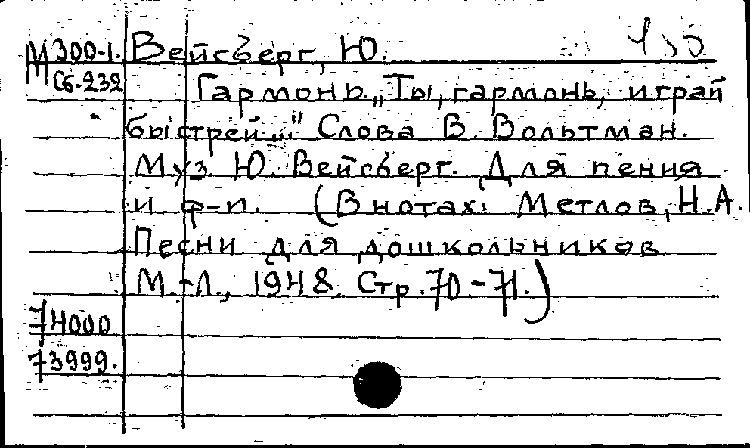 М300-1. Вейсберг, Ю.
М Сб-232 Гармонь. „Ты, гармонь, играй
быстрей..." Слова В. Вольтман.
Муз. Ю. Вейсберг. Для пения
и ф-п. (В нотах: Метлов, Н.А.
Песни для дошкольников
М.-Л., 1948. Стр. 70-71.)
74000
73999.